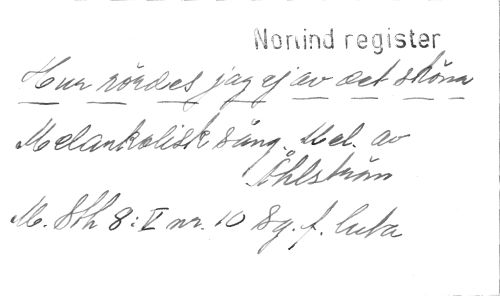 Norlind register
Hur rördes jag ej av det sköna
Melankolisk sång. Mel. av
Åhlström
M. Sth 8:V nr. 10 Sg. f. luta